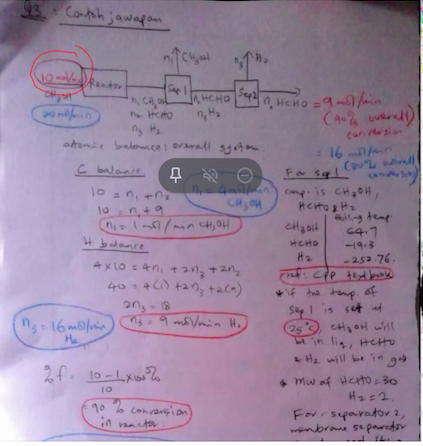 Q3 : Contoh jawapan
n₁ CH₃OH
n₃ H₂
10 mol/min
CH₃OH
20 mol/min
Reactor
Sep 1
Sep 2
n₁ CH₃OH
n₂ HCHO
n₃ H₂
n₂ HCHO
n₃ H₂
n₂ HCHO = 9 mol/min
(90% overall
conversion
= 16 mol/min
(80% overall
conversion
atomic balance: overall system.
C balance
10 = n₁ + n₂
10 = n₁ + 9
n₁ = 1 mol/min CH₃OH
n₁ = 4 mol/min
CH₃OH
H balance
4x10 = 4n₁ + 2n₃ + 2n₂
40 = 4(1) + 2n₃ + 2(9)
2n₃ = 18
n₃ = 9 mol/min H₂
n₃ = 16 mol/min
H₂
% f = 10-1 x100%
10
= 90 % conversion
in reactor
For sep 1
comp. is CH₃OH,
HCHO & H₂
Boiling temp.
CH₃OH 64.7
HCHO -19.3
H₂ -252.76.
ref: CPP textbook
* if the temp. of
Sep 1 is set at
25°C, CH₃OH will
be in liq, HCHO
& H₂ will be in gas
* MW of HCHO = 30
H₂ = 2.
For separator 2,
membrane separator